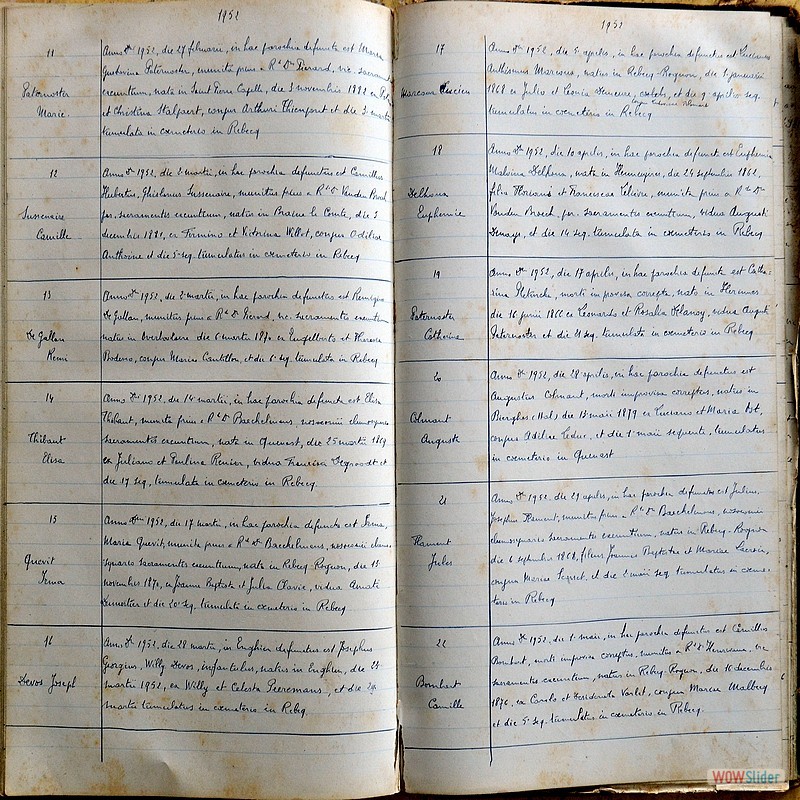 1952
11
Paternoster
Marie.
Anno Dni 1952, die 27 februarii, in hac parochia defuncta est Maria
Gustavina Paternoster, munita prius a Rdo Dno Pierard, vic. sacramentis
exeuntium, nata in Saint Pierre Capelle, die 3 novembris 1881 ex
et Christina Stalpaert, conjux Arthuri Thienpont et die 3 martii
tumulata in coemeterio in Rebecq
12
Camille
Anno Dni 1952, die 2 martii, in hac parochia defunctus est Camillus
Hubertus, Ghislenus munitus prius a Rdo Dno Vanden Broeck
per sacramentis exeuntium, natus in Braine le Comte, die 3
decembris 1881, ex Firmino et Victorina Willot, conjux Odiliae
Anthoine et die 5a seq. tumulatus in coemeterio in Rebecq
13
De Gallan
Remi
Anno Dni 1952, die 2 martii, in hac parochia defunctus est Remigius
De Gallan, munitus prius a Rdo Dno Pierard, vic. sacramentis exeuntium
natus in Overboelare die 6 martii 1870 ex Engelberto et Theresia
conjux Mariae Cantillon, et die 6a seq. tumulata in Rebecq
14
Thibaut
Elisa
Anno Dni 1952, die 14 martii, in hac parochia defuncta est Elisa
Thibaut, munita prius a Rdo Dno Baeckelmans,
sacramentis exeuntium, nata in Quenast, die 25 martii 1869
ex Juliano et Paulina Renier, vidua Francisci Degroodt et
die 17 seq. tumulata in coemeterio in Rebecq.
15
Quevit
Irma
Anno Dni 1952, die 17 martii, in hac parochia defuncta est Irma,
Maria Quevit, munita prius a Rdo Dno Baeckelmans,
sacramentis exeuntium, nata in Rebecq Rognon, die 13
novembris 1870, ex Joanne Baptista et Julia Clavie, vidua Amati
Demortier et die 20a seq. tumulata in coemeterio in Rebecq
16
Devos Joseph
Anno Dni 1952, die 28 martii, in Enghien defunctus est Josephus
Georgius, Willy Devos, infantulus, natus in Enghien, die 25
martii 1952, ex Willy et Celesta Peeremans, et die 29
martii tumulatus in coemeterio in Rebecq.
1952
17
Marcoux Lucien
Anno Dni 1952, die 5 aprilis, in hac parochia defunctus est Lucianus
Anthismus natus in Rebecq Rognon, die 1 januarii
1868 ex Julio et Leonia Demeure, coelebs, et die 9 aprilis seq.
tumulatus in coemeterio in Rebecq
18
Delhoux
Euphemie
Anno Dni 1952, die 10 aprilis, in hac parochia defuncta est Euphemia
Malvina Delhoux, nata in Hennuyeres, die 24 septembris 1862,
filia Floriani et Franciscae Lelievre, munita prius a Rdo Dno
Vanden Broeck, per sacramentis exeuntium, vidua Augusti
et die 14 seq. tumulata in coemeterio in Rebecq
19
Paternoster
Catherine
Anno Dni 1952, die 17 aprilis, in hac parochia defuncta est Catha-
rina morti improvisa correpta, nata in Herinnes
die 16 junii 1866 ex Leonardo et Rosalia Blanoy, vidua Augusti
Paternoster et die 21 seq. tumulata in coemeterio in Rebecq
20
Colmant
Auguste
Anno Dni 1952, die 28 aprilis, in hac parochia defunctus est
Augustus Colmant, morti improvisa correptus, natus in
Bierghes (Hal) die 13 maii 1879 ex Luciano et Maria Ost,
conjux Adelinae Leduc, et die 1 maii sequente, tumulatus
in coemeterio in Quenast
21
Flament
Jules
Anno Dni 1952, die 29 aprilis, in hac parochia defunctus est Julius
Josephus Flament, munitus prius a Rdo Dno Baeckelmans,
sacramentis exeuntium, natus in Rebecq-Rognon
die 6 septembris 1868, filius Joannis Baptistae et Mariae Lacroix,
conjux Mariae et die 2 maii seq. tumulatus in coeme-
terio in Rebecq
22
Bombart
Camille
Anno Dni 1952, die 1 maii, in hac parochia defunctus est Camillus
Bombart, morti improvisa correptus, munitus a Rdo Dno vic
sacramentis exeuntium, natus in Rebecq Rognon, die 16 decembris
1876, ex Carolo et Desiderata Varlet, conjux Mariae Malberg
et die 5a seq. tumulatus in coemeterio in Rebecq.
WOWSlider